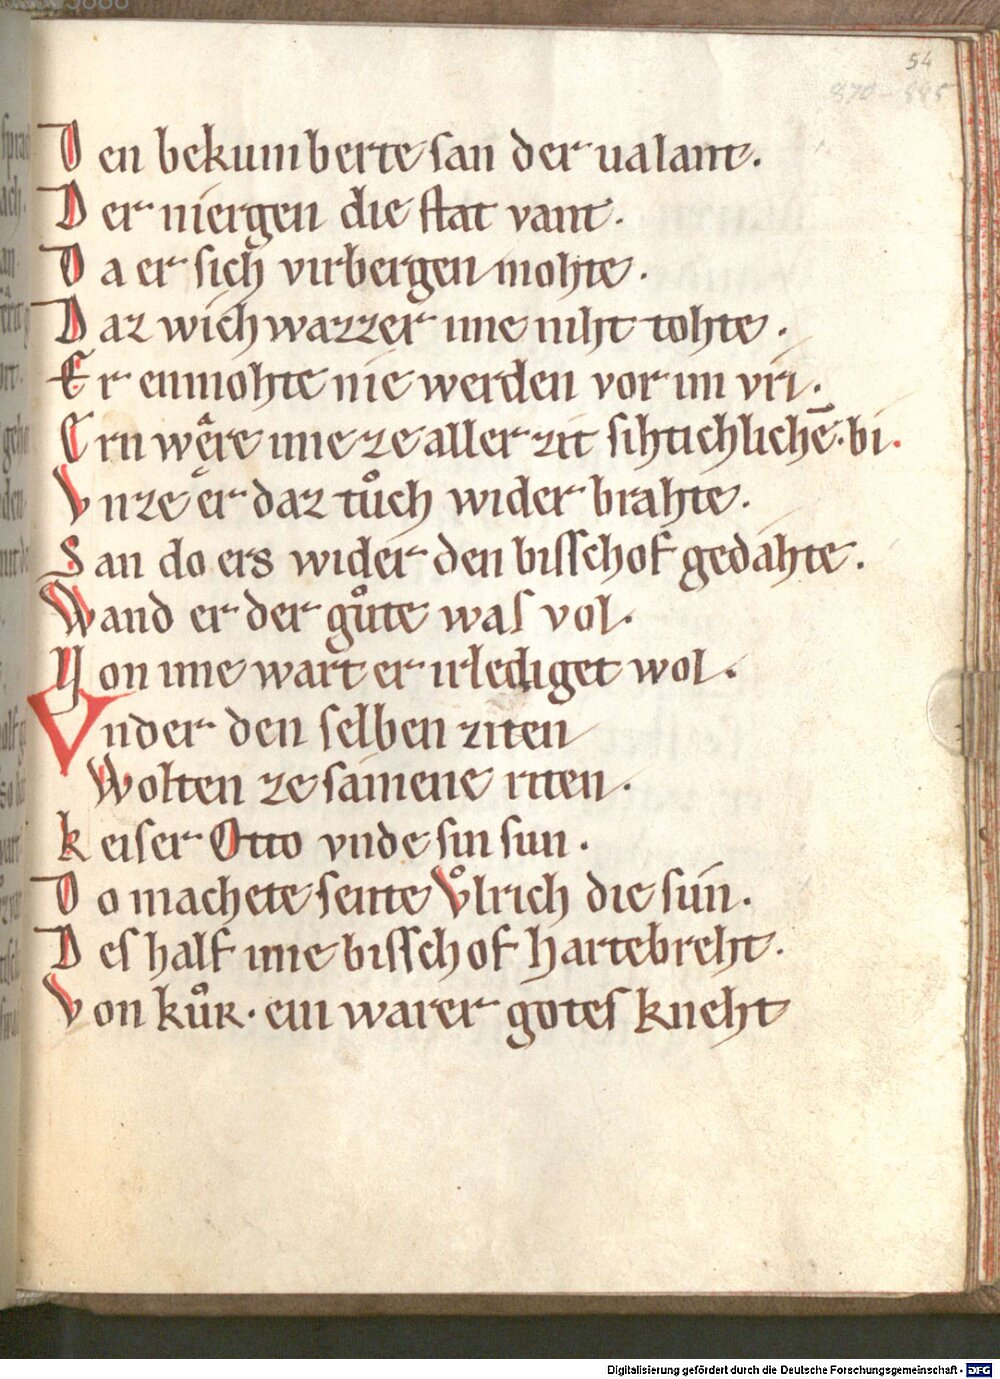 54
870–885
Den bekumberte ſan der ualant.
Der niergen die ſtat vant.
Da er ſich virbergen mohte.
Daz wich wazzer ime niht tohte.
Er enmohte nie werden vor im vri.
Ern wêre ime ze aller zit ſihtichlichē. bi.
Vnze er daz tůch wider brahte.
San do ers wider den biſſchof gedahte.
Wand er der gůte waſ vol.
Von ime wart er irlediget wol.
Vnder den ſelben ziten
Wolten ze ſamene riten.
keiſer Otto vnde ſin ſun.
Do machete ſente Vͦlrich die ſůn.
Deſ half ime biſſchof hartebreht.
Von kůR. ein warer goteſ kneht
Digitalisierung gefördert durch die Deutsche Forschungsgemeinschaft - DFG